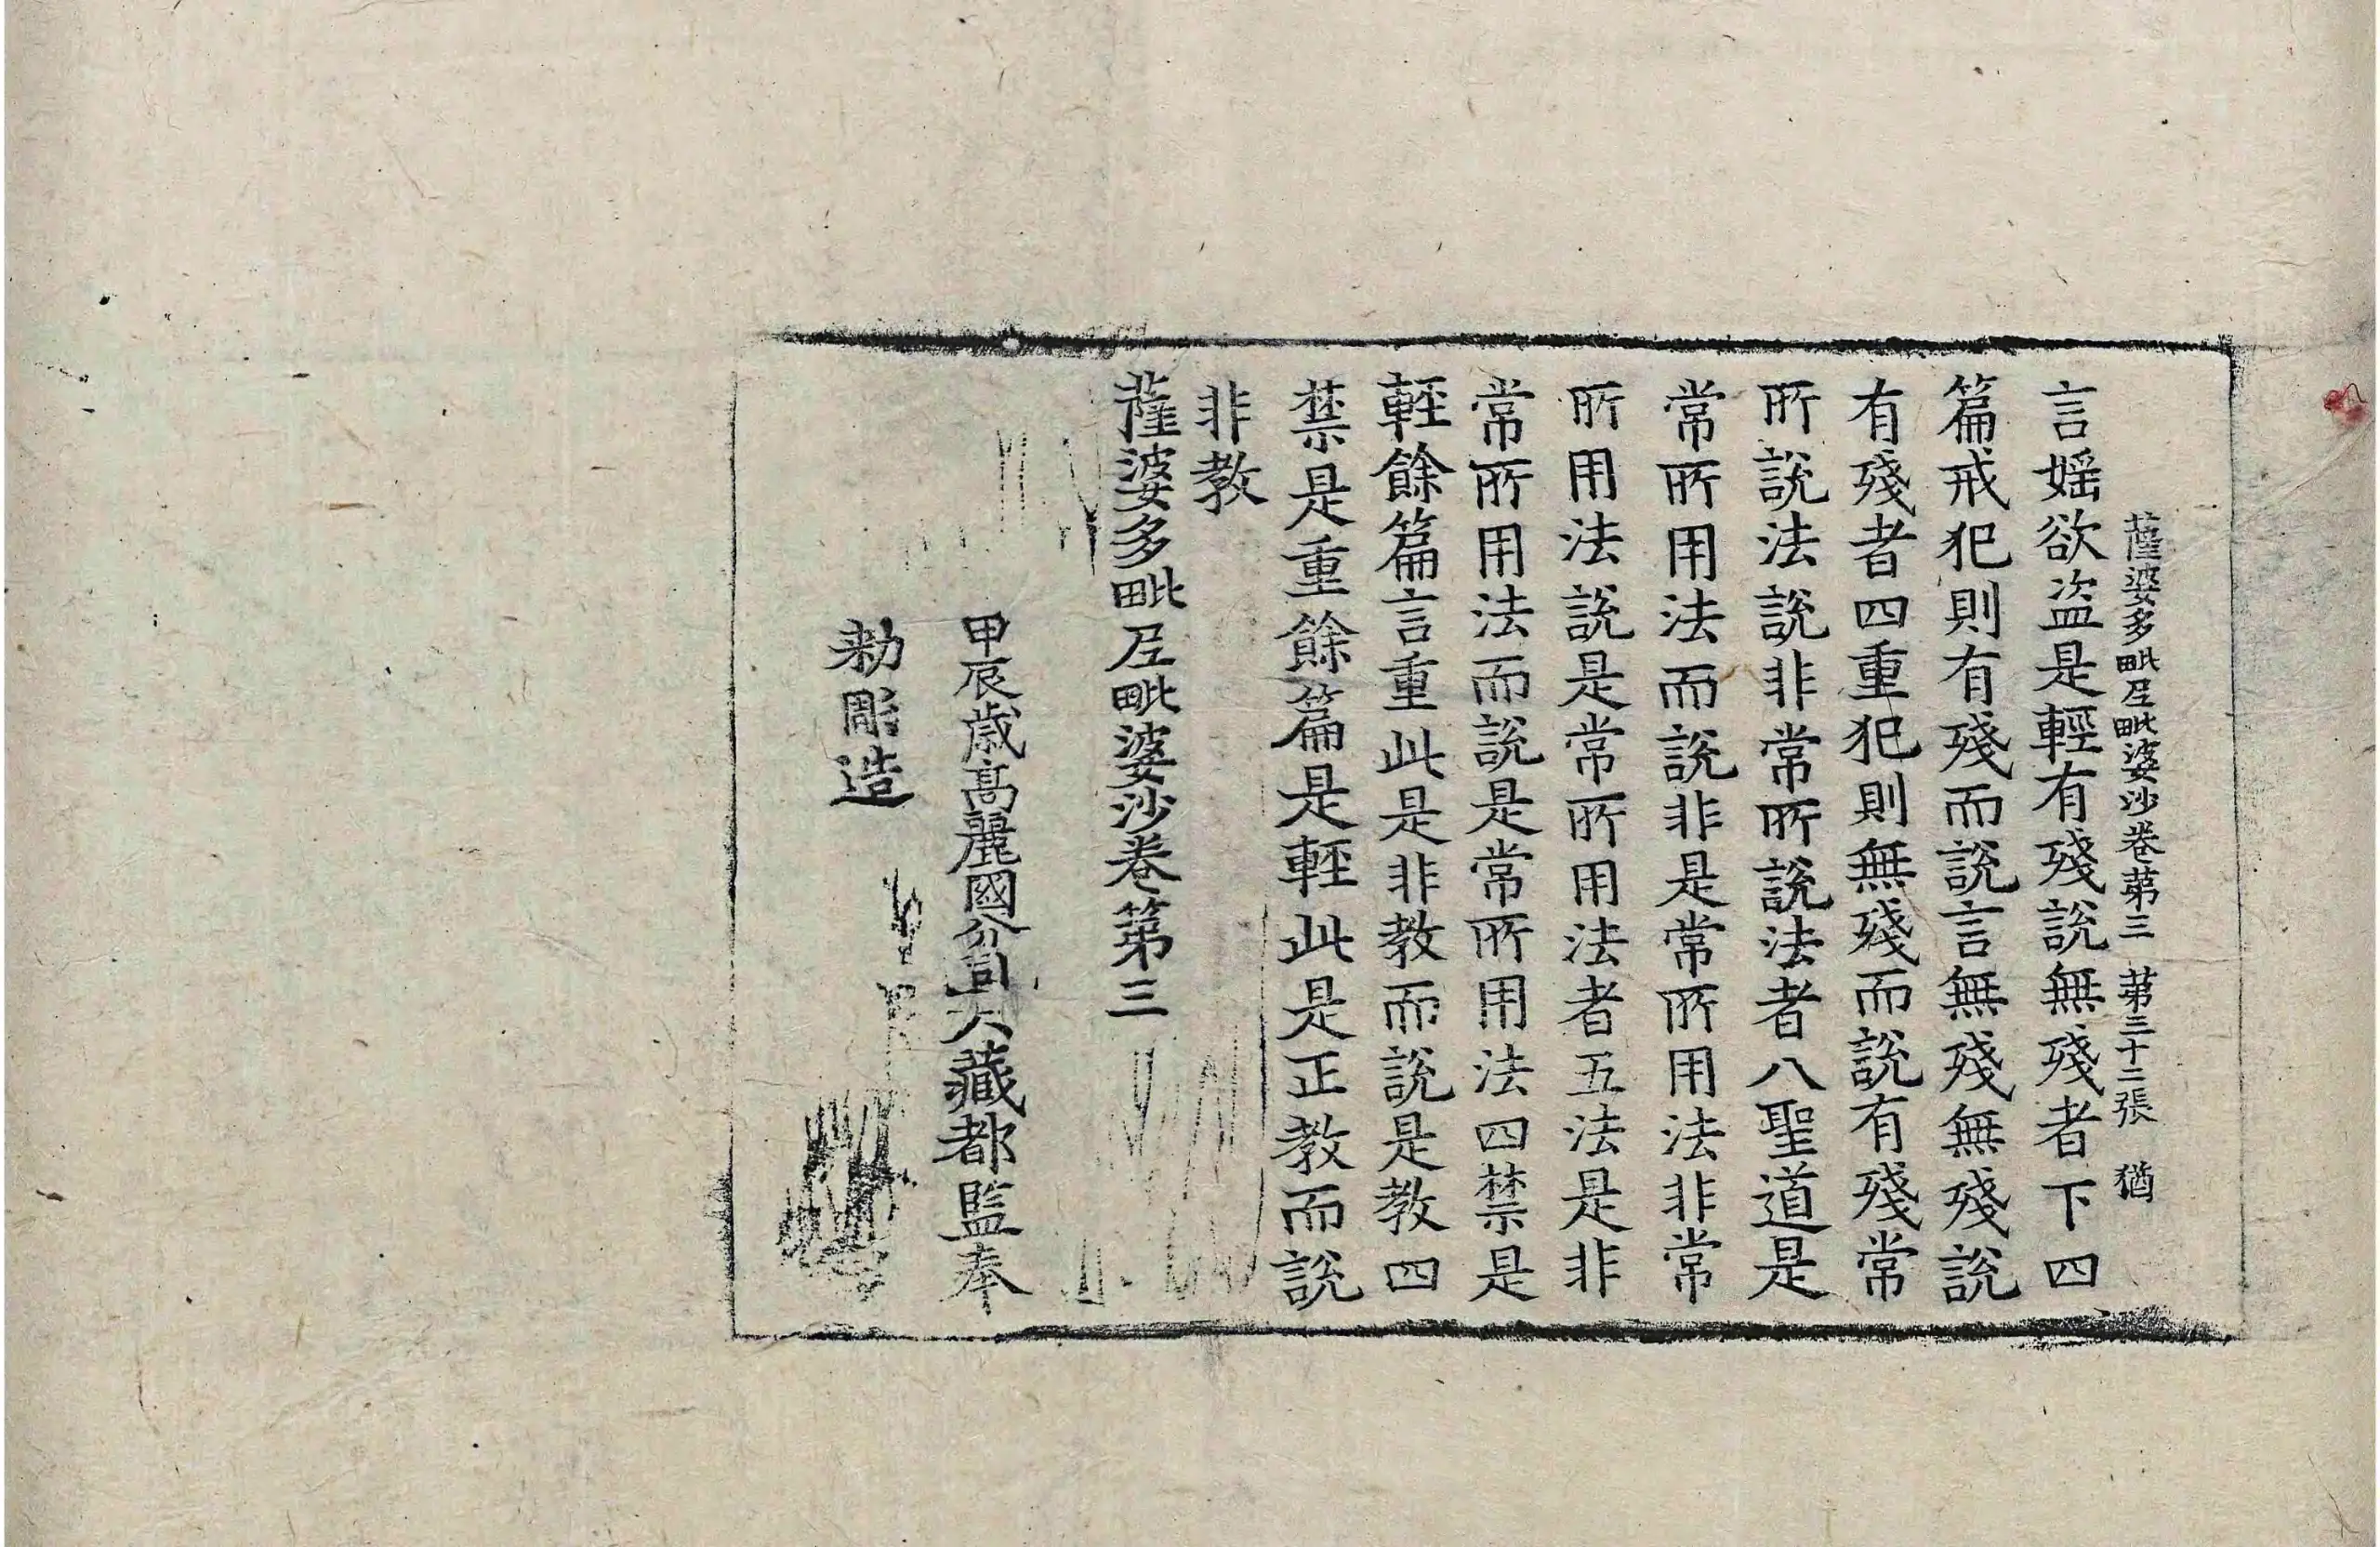 薩婆多毗尼毗婆沙卷第三 第三十二張 猶
言婬欲盜是輕有殘說無殘者下四
篇戒犯則有殘而說言無殘無殘說
有殘者四重犯則無殘而說有殘常
所說法說非常所說法者八聖道是
常所用法而說非是常所用法非常
所用法說是常所用法者五法是非
常所用法而說是常所用法四禁是
輕餘篇言重此是非教而說是教四
禁是重餘篇是輕此是正教而說
非教
薩婆多毗尼毗婆沙卷第三
甲辰歲高麗國分司大藏都監奉
勑彫造